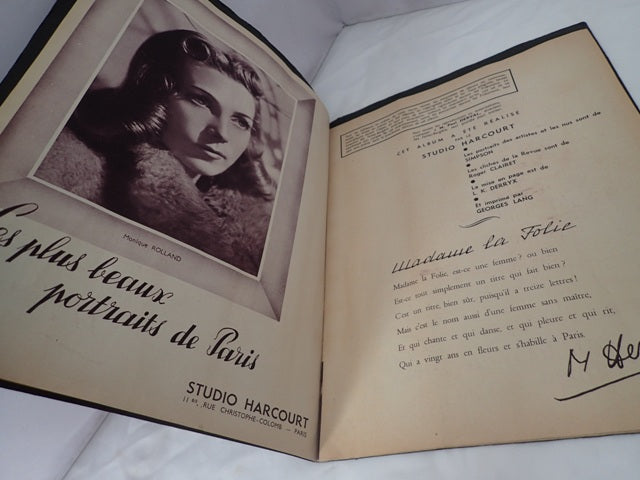 Monique ROLLAND
Les plus beaux
portraits de Paris
STUDIO HARCOURT
11 BIS, RUE CHRISTOPHE-COLOMB — PARIS
CET ALBUM A ÉTÉ RÉALISÉ
PAR LE
STUDIO HARCOURT
Les portraits des artistes et les nus sont de
SIMPSON
Les clichés de la Revue sont de
Roger CLAIRET
La mise en page est de
L. K. DERRYX
Et imprimé par
GEORGES LANG
Madame la Folie
Madame la Folie, est-ce une femme? ou bien
Est-ce tout simplement un titre qui fait bien?
C'est un titre bien sûr, puisqu'il a treize lettres!
Mais c'est le nom aussi d'une femme sans maître,
Et qui chante et qui danse, et qui pleure et qui rit,
Qui a vingt ans en fleurs et s'habille à Paris.
M